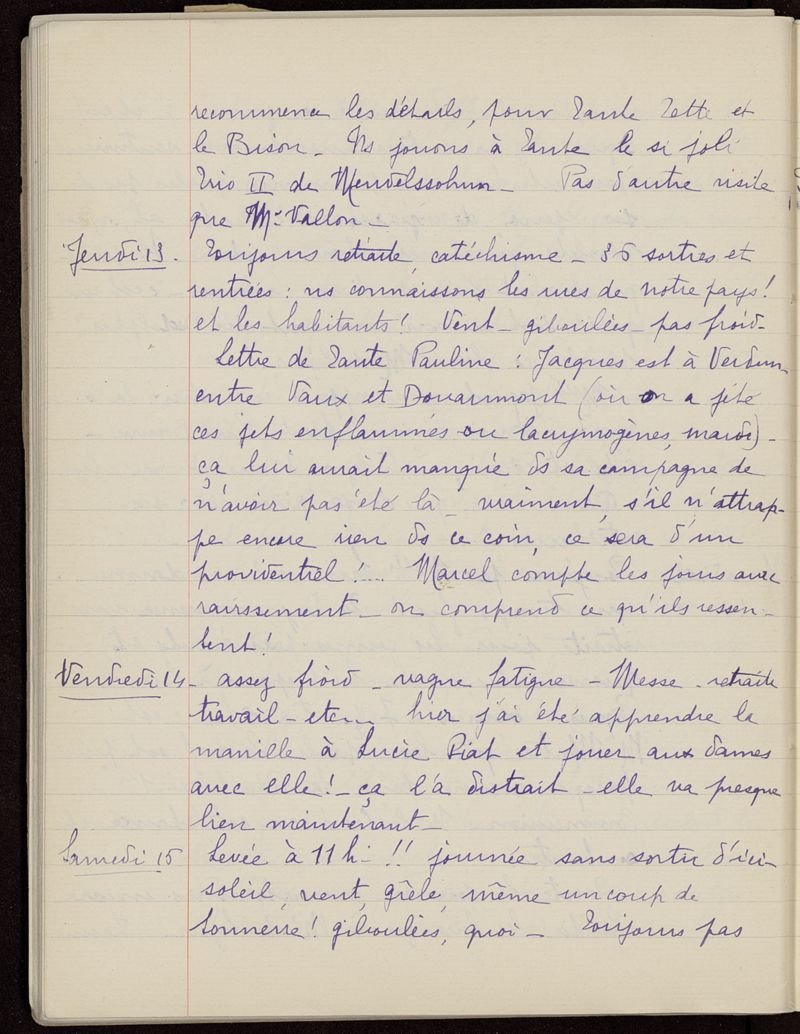 recommence les détails, pour Tante Tette et
le Bison - Ns jouons à Tante le si joli
Trio II de Mendelssohn - Pas d'autre visite
que Mr Vallon -
Jeudi 13. Toujours retraite, catéchisme - 36 sorties et
rentrées : ns connaissons les rues de notre pays !
et les habitants ! Vent - giboulées - pas froid -
Lettre de Tante Pauline : Jacques est à Verdun
entre Vaux et Douaumont (où on a jeté
ces jets enflammés ou lacrymogènes, mardi) -
ça lui aurait manqué ds sa campagne de
n'avoir pas été là - vraiment, s'il n'attrap-
pe encore rien ds ce coin, ce sera d'un
providentiel !... Marcel compte les jours avec
ravissement - on comprend ce qu'ils ressen-
tent !
Vendredi 14 - assez froid - vague fatigue - Messe - retraite
travail - etc... hier j'ai été apprendre la
manille à Lucie Piat et jouer aux dames
avec elle ! - ça l'a distrait - elle va presque
bien maintenant -
Samedi 15 Levée à 11 h - !! journée sans sortir d'ici -
soleil, vent, grêle, même un coup de
tonnerre ! giboulées, quoi - Toujours pas